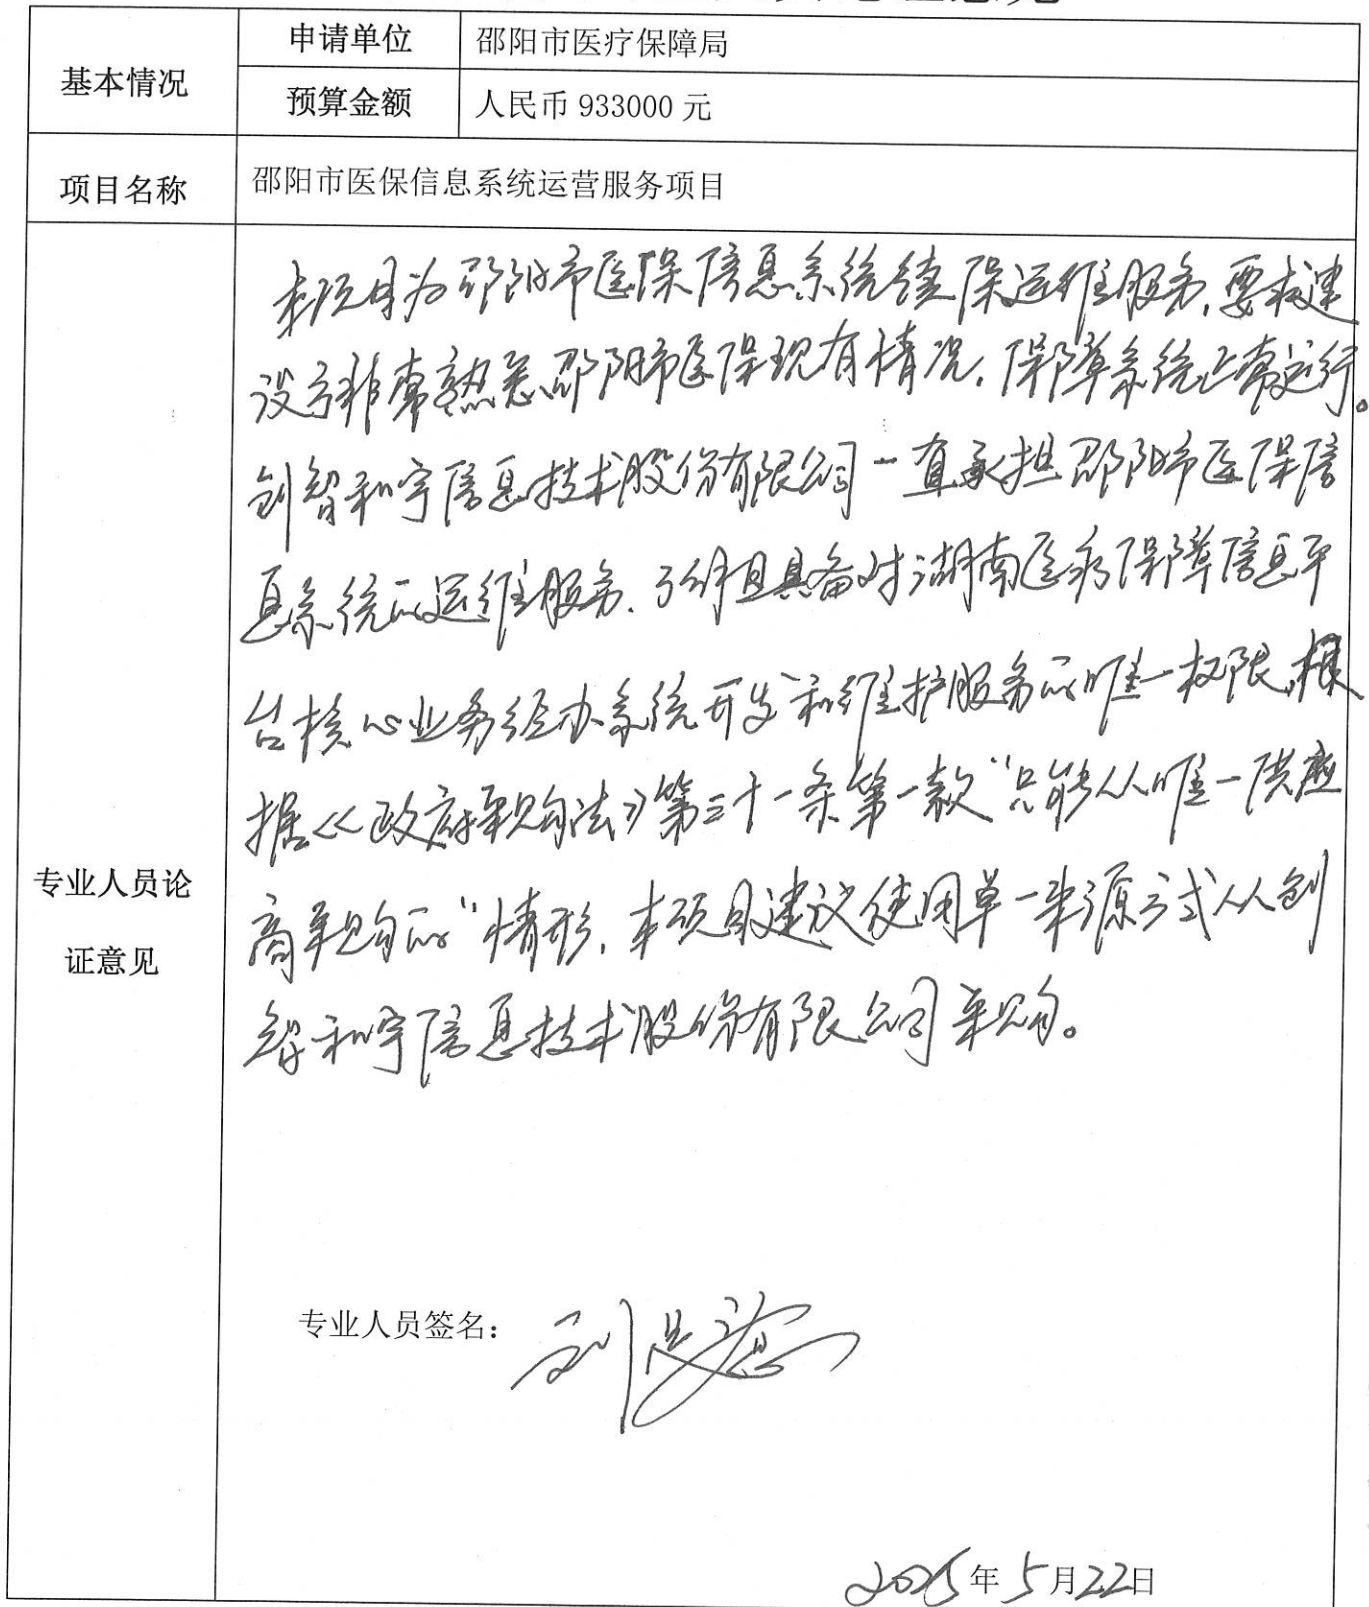 基本情况
申请单位
邵阳市医疗保障局
预算金额
人民币 933000 元
项目名称
邵阳市医保信息系统运营服务项目
专业人员论
证意见
本项目为邵阳市医保信息系统续保运维服务,要求建
设方非常熟悉邵阳市医保现有情况,保障系统正常运行。
创智和宇信息技术股份有限公司一直承担邵阳市医保信
息系统的运维服务,并且具备对湖南医疗保障信息平
台核心业务经办系统开发和维护服务的唯一权限,根
据《政府采购法》第三十一条第一款“只能从唯一供应
商采购的”情形,本项目建议使用单一来源方式从创
智和宇信息技术股份有限公司采购。
专业人员签名:
2025年5月22日